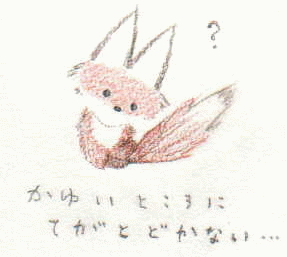 ?
かゆいところに
てがとどかない…